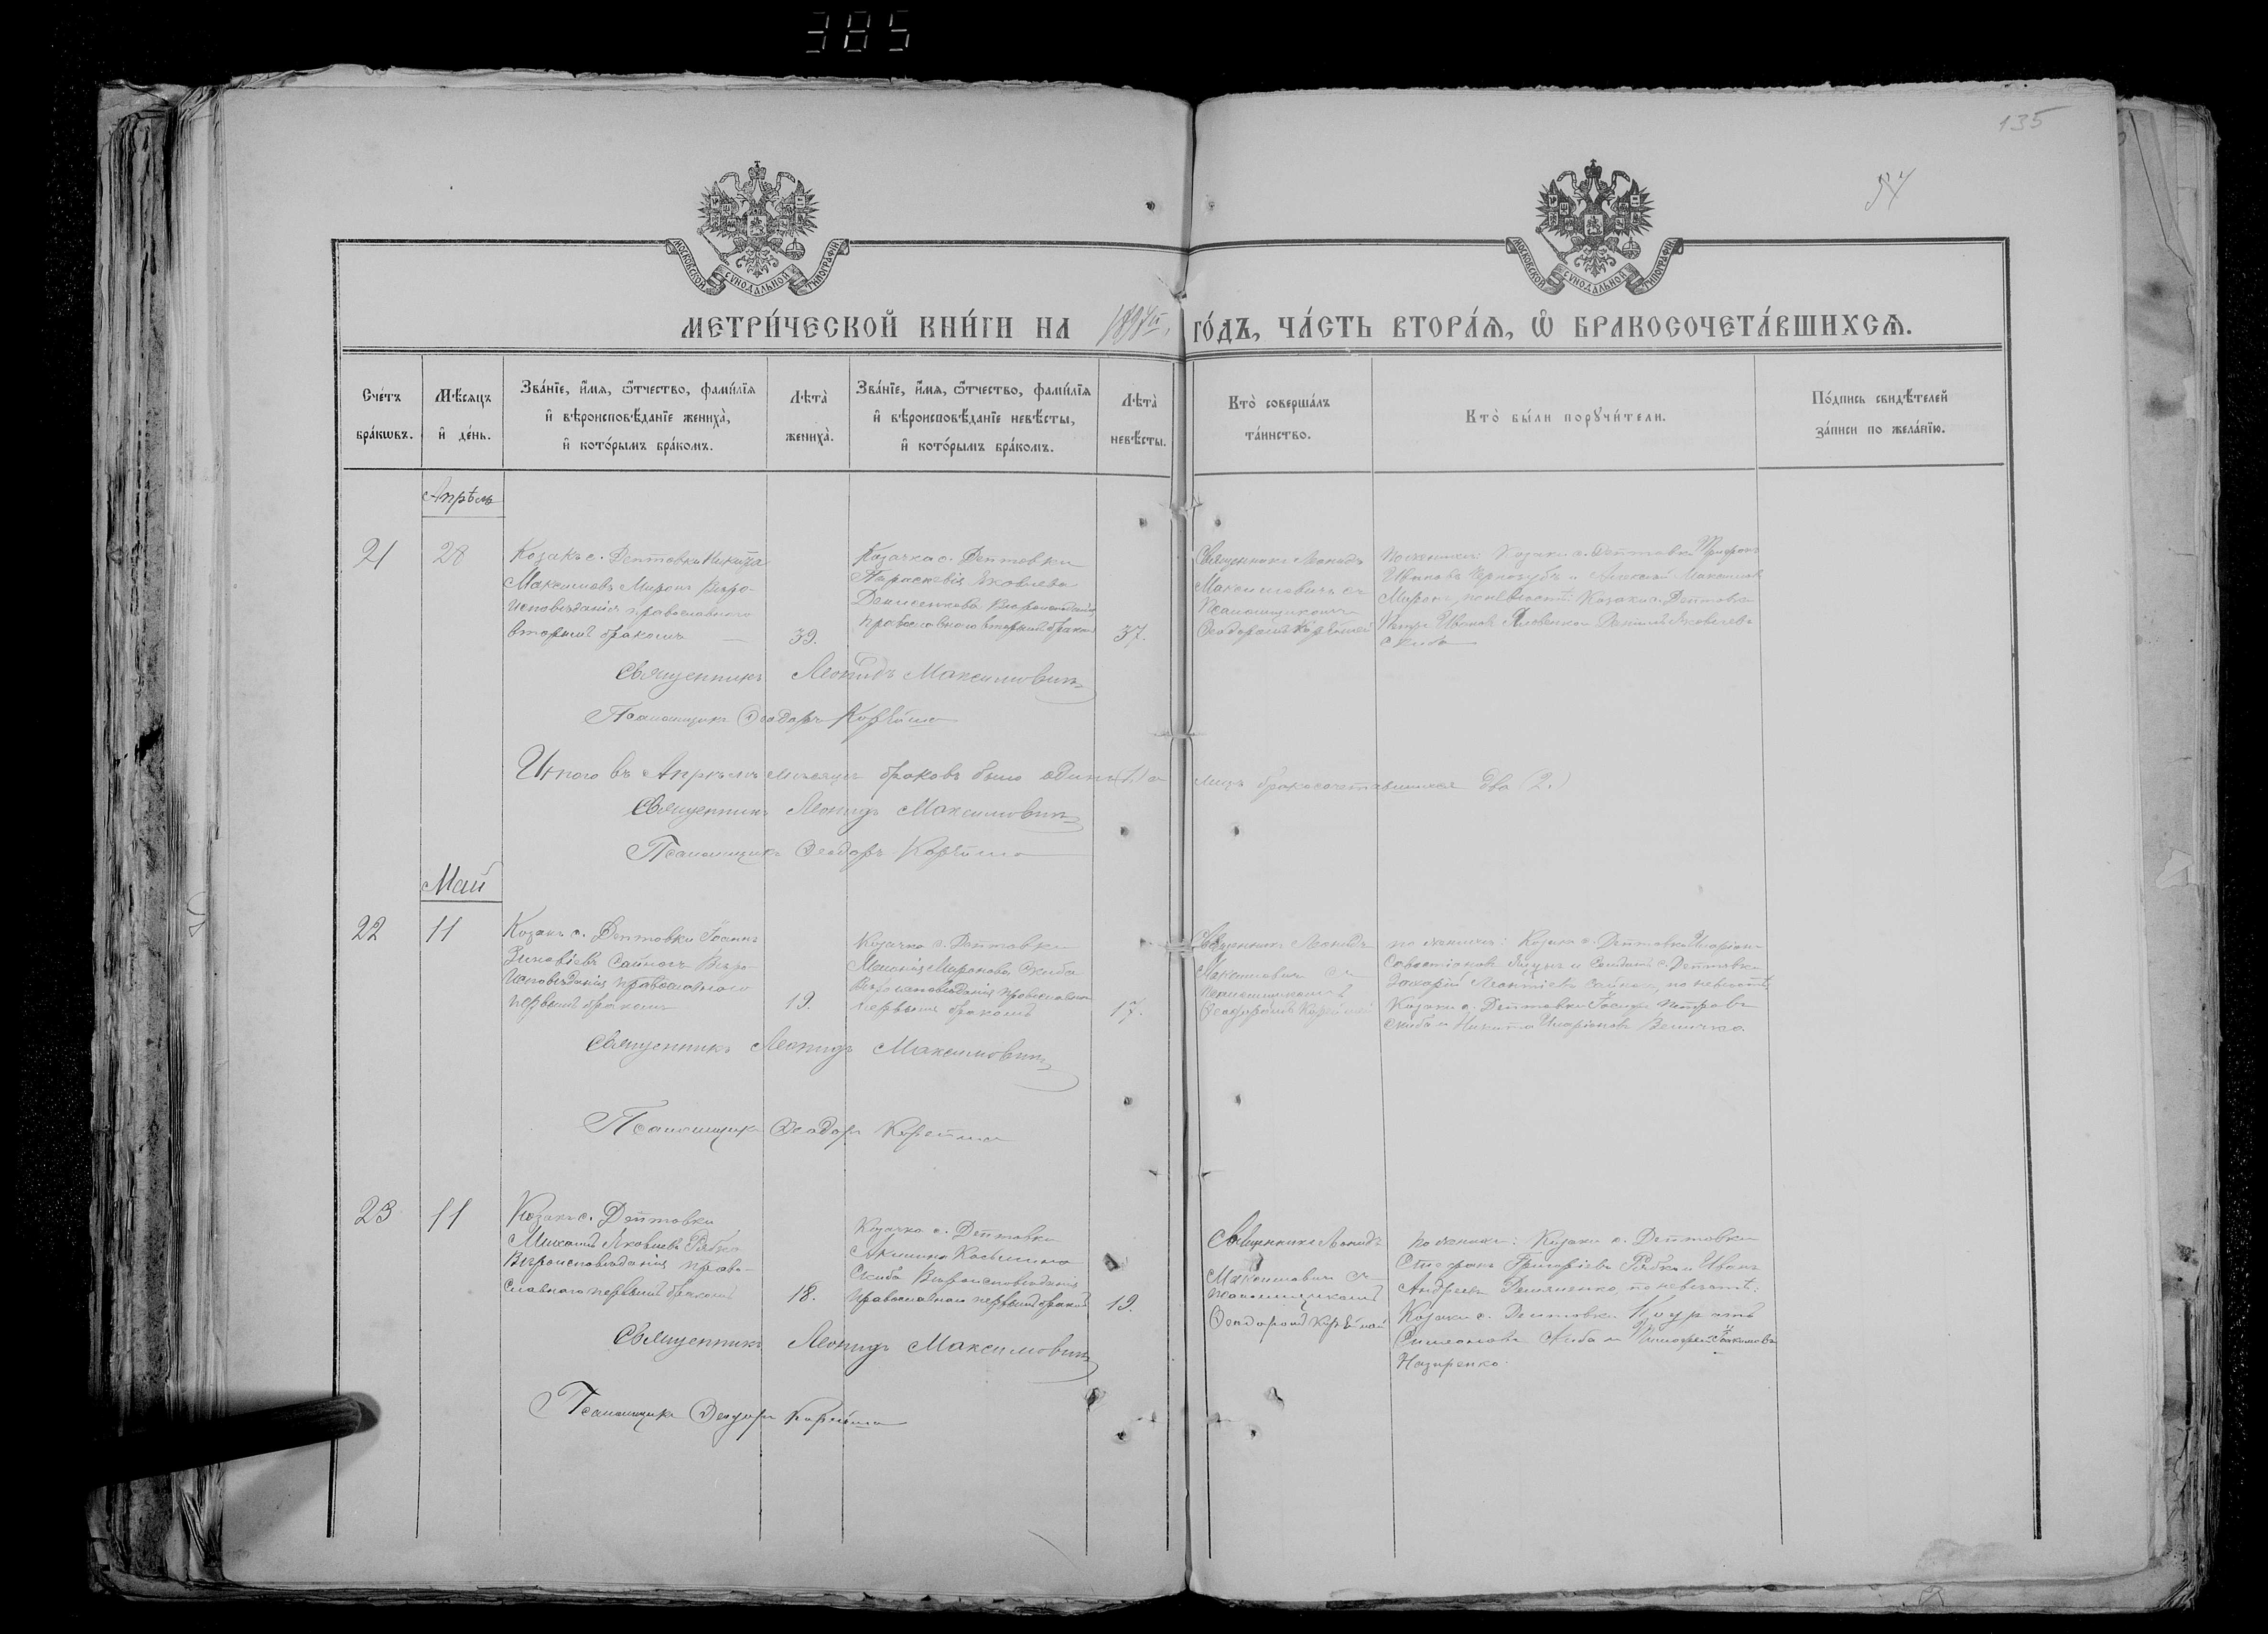 385
135
МОСКОВСКОЙ СУНОДАЛЬНОЙ ТИПОГРАФІИ
МОСКОВСКОЙ СУНОДАЛЬНОЙ ТИПОГРАФІИ
МЕТРИ́ЧЕСКОЙ КНИ́ГИ НА ГО́ДЪ, ЧА́СТЬ ВТОРА́Я, Ѽ БРАКОСОЧЕТА́ВШИХСЯ.
Сче́тъ бра́кѡвъ.
Мѣ́сяцъ и҆ де́нь.
Зва́нїе, и҆́мя, ѻ҆́тчество, фами́лїя и҆ вѣроисповѣ́данїе жениха̀, и҆ кото́рымъ бра́комъ.
Лѣта̀ жениха̀.
Зва́нїе, и҆́мя, ѻ҆́тчество, фами́лїя и҆ вѣроисповѣ́данїе невѣ́сты, и҆ кото́рымъ бра́комъ.
Лѣта̀ невѣ́сты.
Кто̀ соверша́лъ та́инство.
Кто̀ бы́ли порꙋчи́тели.
По́дпись свидѣ́телей за́писи по жела́нїю.
Апрѣль
21
28
Козакъ с. Дептовки Никита
Максимовъ Миронъ Вѣро-
исповѣданія православнаго
вторымъ бракомъ
39.
Козачка с. Дептовки
Параскевія Яковлева
Денисенкова Вѣроисповѣданія
православнаго вторымъ бракомъ
37.
Священникъ Леонидъ
Максимовичъ съ
Псаломщикомъ
Ѳеодоромъ
по женихѣ: Козаки с. Дептовки Трифонъ
Ивановъ Черногубъ и Алексей Максимовъ
Миронъ, по невѣстѣ: Козаки с. Дептовки
Петръ Ивановъ и Даніилъ Яковлевъ
Скиба
Священникъ Леонидъ Максимовичъ
Псаломщикъ Ѳеодоръ
Итого въ Апрѣлѣ мѣсяцѣ браковъ было одинъ (1.) а лицъ бракосочетавшихся два (2.)
Священникъ Леонидъ Максимовичъ
Псаломщикъ Ѳеодоръ
Май
22
11
Козакъ с. Дептовки Іоаннъ
Зиновіевъ Сайко Вѣро-
исповѣданія православнаго
первымъ бракомъ
19.
Козачка с. Дептовки
Миронова Скиба
Вѣроисповѣданія православнаго
первымъ бракомъ
17.
Священникъ Леонидъ
Максимовичъ съ
псаломщикомъ
Ѳеодоромъ
по женихѣ: Козаки с. Дептовки Иларіонъ
и Солдатъ с. Дептовки
Захарій Леонтіевъ Сайко, по невѣстѣ
Козаки с. Дептовки Іосифъ Петровъ
Скиба и Никита Иларіоновъ Величко.
Священникъ Леонидъ Максимовичъ
Псаломщикъ Ѳеодоръ
23
11
Козакъ с. Дептовки
Михаилъ Яковлевъ Рябко
Вѣроисповѣданія право-
славнаго первымъ бракомъ
18.
Козачка с. Дептовки
Акилина Косьмина
Скиба Вѣроисповѣданія
православнаго первымъ бракомъ
19.
Священникъ Леонидъ
Максимовичъ съ
псаломщикомъ
Ѳеодоромъ
по женихѣ: Козаки с. Дептовки
Стефанъ Григоріевъ Рябко и Иванъ
Андреевъ Демяненко, по невѣстѣ:
Козаки с. Дептовки
Симеоновъ Скиба и Тимофей
Назаренко.
Священникъ Леонидъ Максимовичъ
Псаломщикъ Ѳеодоръ